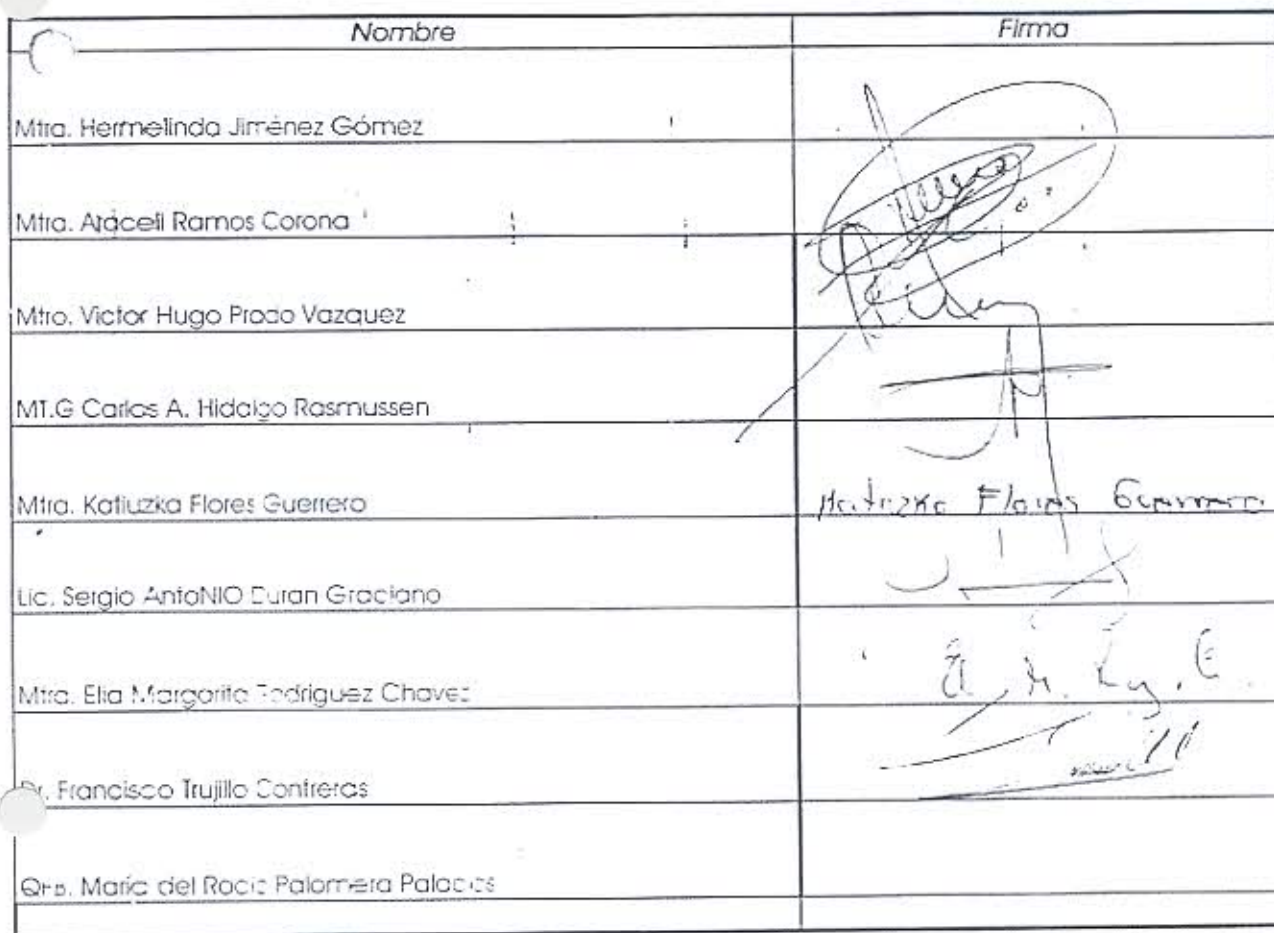 Nombre Firma
Mtra. Hermelinda Jiménez Gómez
Mtra. Araceli Ramos Corona
Mtro. Victor Hugo Prado Vazquez
MT.G Carlos A. Hidalgo Rasmussen
Mtra. Katiuzka Flores Guerrero Katiuzka Flores Guerrero
Lic. Sergio AntoNIO Duran Graciano
Mtra. Elia Margarita Rodriguez Chavez
Dr. Francisco Trujillo Contreras
María del Rocio Palomera Palacios